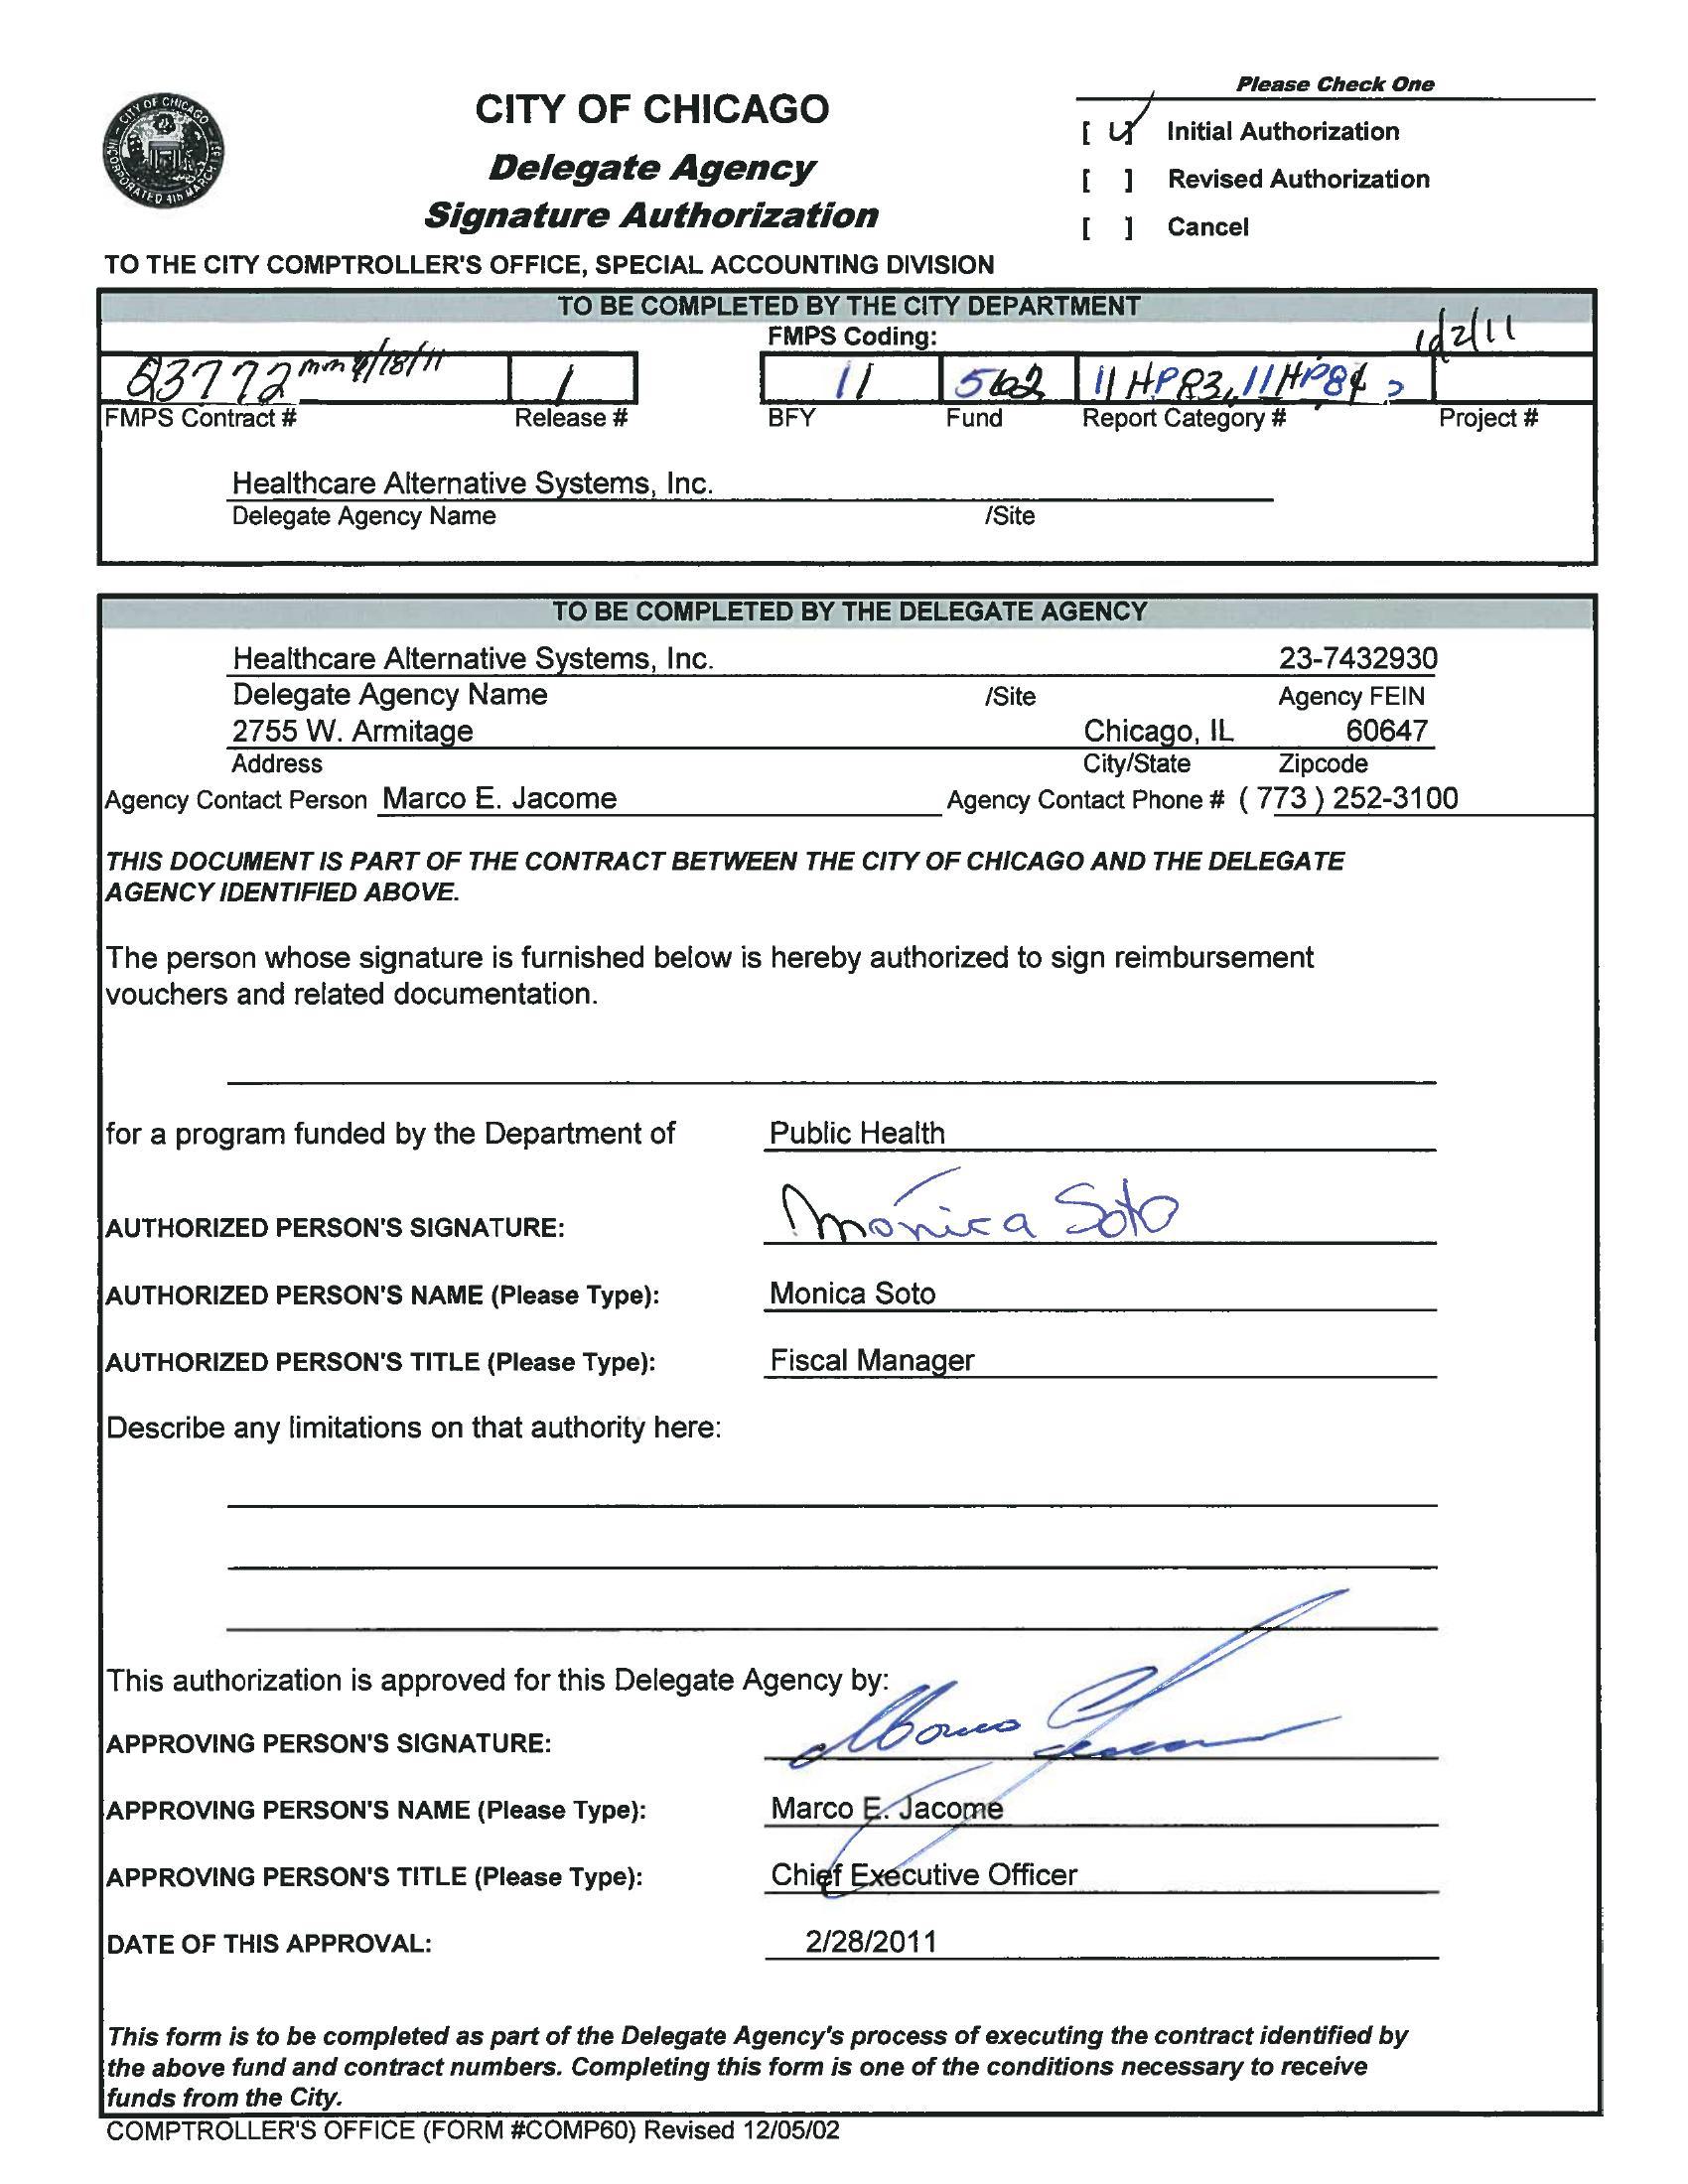 Please Check One
CITY OF CHICAGO
Delegate Agency
Signature Authorization
CITY OF CHICAGO INCORPORATED 4th MARCH
[ ] Initial Authorization
[ ] Revised Authorization
[ ] Cancel
TO THE CITY COMPTROLLER'S OFFICE, SPECIAL ACCOUNTING DIVISION
TO BE COMPLETED BY THE CITY DEPARTMENT
FMPS Coding:
23772 mm 4/18/11 1 11 562 11 HP83, 11 HP84
FMPS Contract # Release # BFY Fund Report Category # Project #
Healthcare Alternative Systems, Inc.
Delegate Agency Name /Site
TO BE COMPLETED BY THE DELEGATE AGENCY
Healthcare Alternative Systems, Inc. 23-7432930
Delegate Agency Name /Site Agency FEIN
2755 W. Armitage Chicago, IL 60647
Address City/State Zipcode
Agency Contact Person Marco E. Jacome Agency Contact Phone # ( 773 ) 252-3100
THIS DOCUMENT IS PART OF THE CONTRACT BETWEEN THE CITY OF CHICAGO AND THE DELEGATE
AGENCY IDENTIFIED ABOVE.
The person whose signature is furnished below is hereby authorized to sign reimbursement
vouchers and related documentation.
for a program funded by the Department of Public Health
AUTHORIZED PERSON'S SIGNATURE: Monica Soto
AUTHORIZED PERSON'S NAME (Please Type): Monica Soto
AUTHORIZED PERSON'S TITLE (Please Type): Fiscal Manager
Describe any limitations on that authority here:
This authorization is approved for this Delegate Agency by:
APPROVING PERSON'S SIGNATURE:
APPROVING PERSON'S NAME (Please Type): Marco E. Jacome
APPROVING PERSON'S TITLE (Please Type): Chief Executive Officer
DATE OF THIS APPROVAL: 2/28/2011
This form is to be completed as part of the Delegate Agency's process of executing the contract identified by
the above fund and contract numbers. Completing this form is one of the conditions necessary to receive
funds from the City.
COMPTROLLER'S OFFICE (FORM #COMP60) Revised 12/05/02